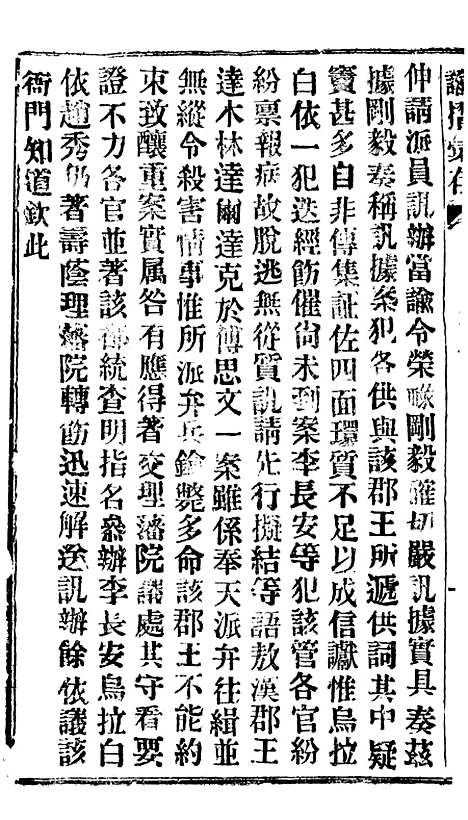 諭摺彙存
仲請派員訊辦當諭令榮祿剛毅確切嚴訊據實具奏茲
據剛毅奏稱訊據案犯各供與該郡王所遞供詞其中疑
竇甚多自非傳集証佐四面環質不足以成信讞惟烏拉
白依一犯迭經飭催尙未到案李長安等犯該管各官紛
紛禀報病故脫逃無從質訊請先行擬結等語敖漢郡王
達木林達爾達克於傅思文一案雖係奉天派弁往緝並
無縱令殺害情事惟所派弁兵鎗斃多命該郡王不能約
束致釀重案實属咎有應得著交理藩院議處其守看要
證不力各官並著該都統查明指名叅辦李長安烏拉白
依趙秀仍著壽蔭理藩院轉飭迅速解送訊辦餘依議該
衙門知道欽此